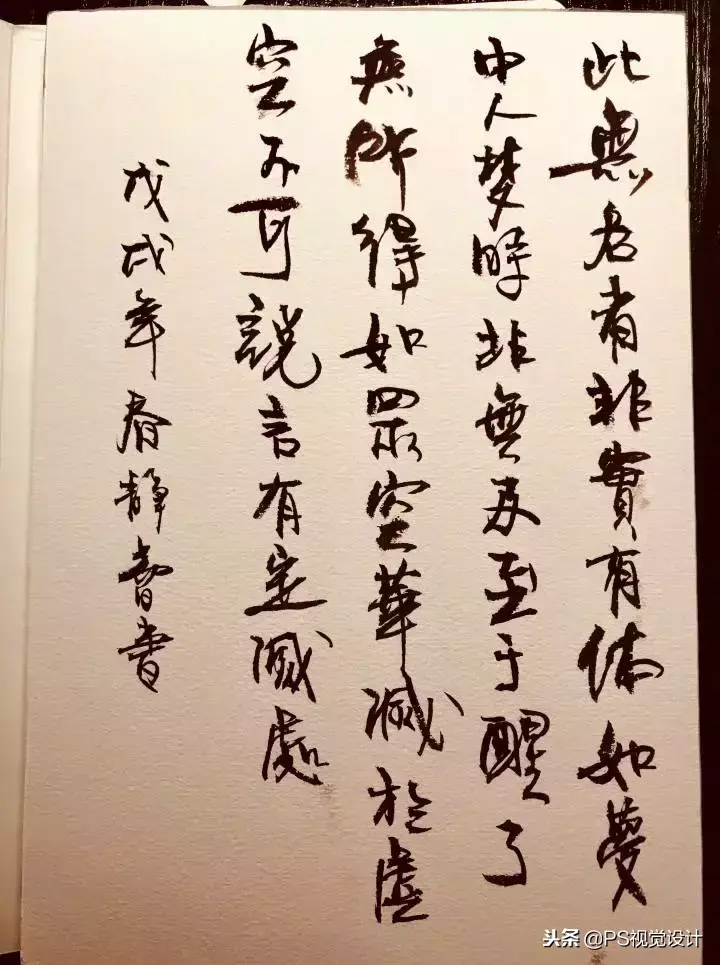 此無名者非實有體如夢
中人梦時非無及至于醒了
無所得如眾空華滅於虛
空不可説言有定滅處
戊戌年春靜書
头条 @PS视觉设计